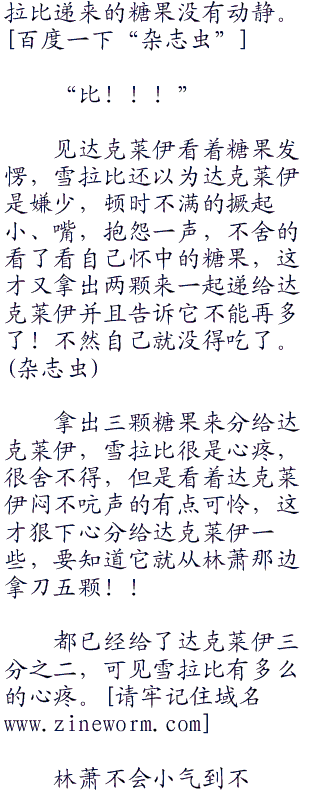 拉比递来的糖果没有动静。
[百度一下“杂志虫”]
“比！！！”
见达克莱伊看着糖果发
愣，雪拉比还以为达克莱伊
是嫌少，顿时不满的撅起
小、嘴，抱怨一声，不舍的
看了看自己怀中的糖果，这
才又拿出两颗来一起递给达
克莱伊并且告诉它不能再多
了！不然自己就没得吃了。
(杂志虫)
拿出三颗糖果来分给达
克莱伊，雪拉比很是心疼，
很舍不得，但是看着达克莱
伊闷不吭声的有点可怜，这
才狠下心分给达克莱伊一
些，要知道它就从林萧那边
拿刀五颗！！
都已经给了达克莱伊三
分之二，可见雪拉比有多么
的心疼。[请牢记住域名
www.zineworm.com]
林萧不会小气到不